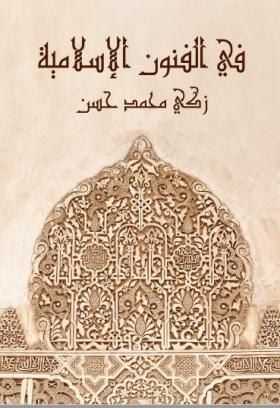 في الفنون الإسلامية
زكي محمد حسن